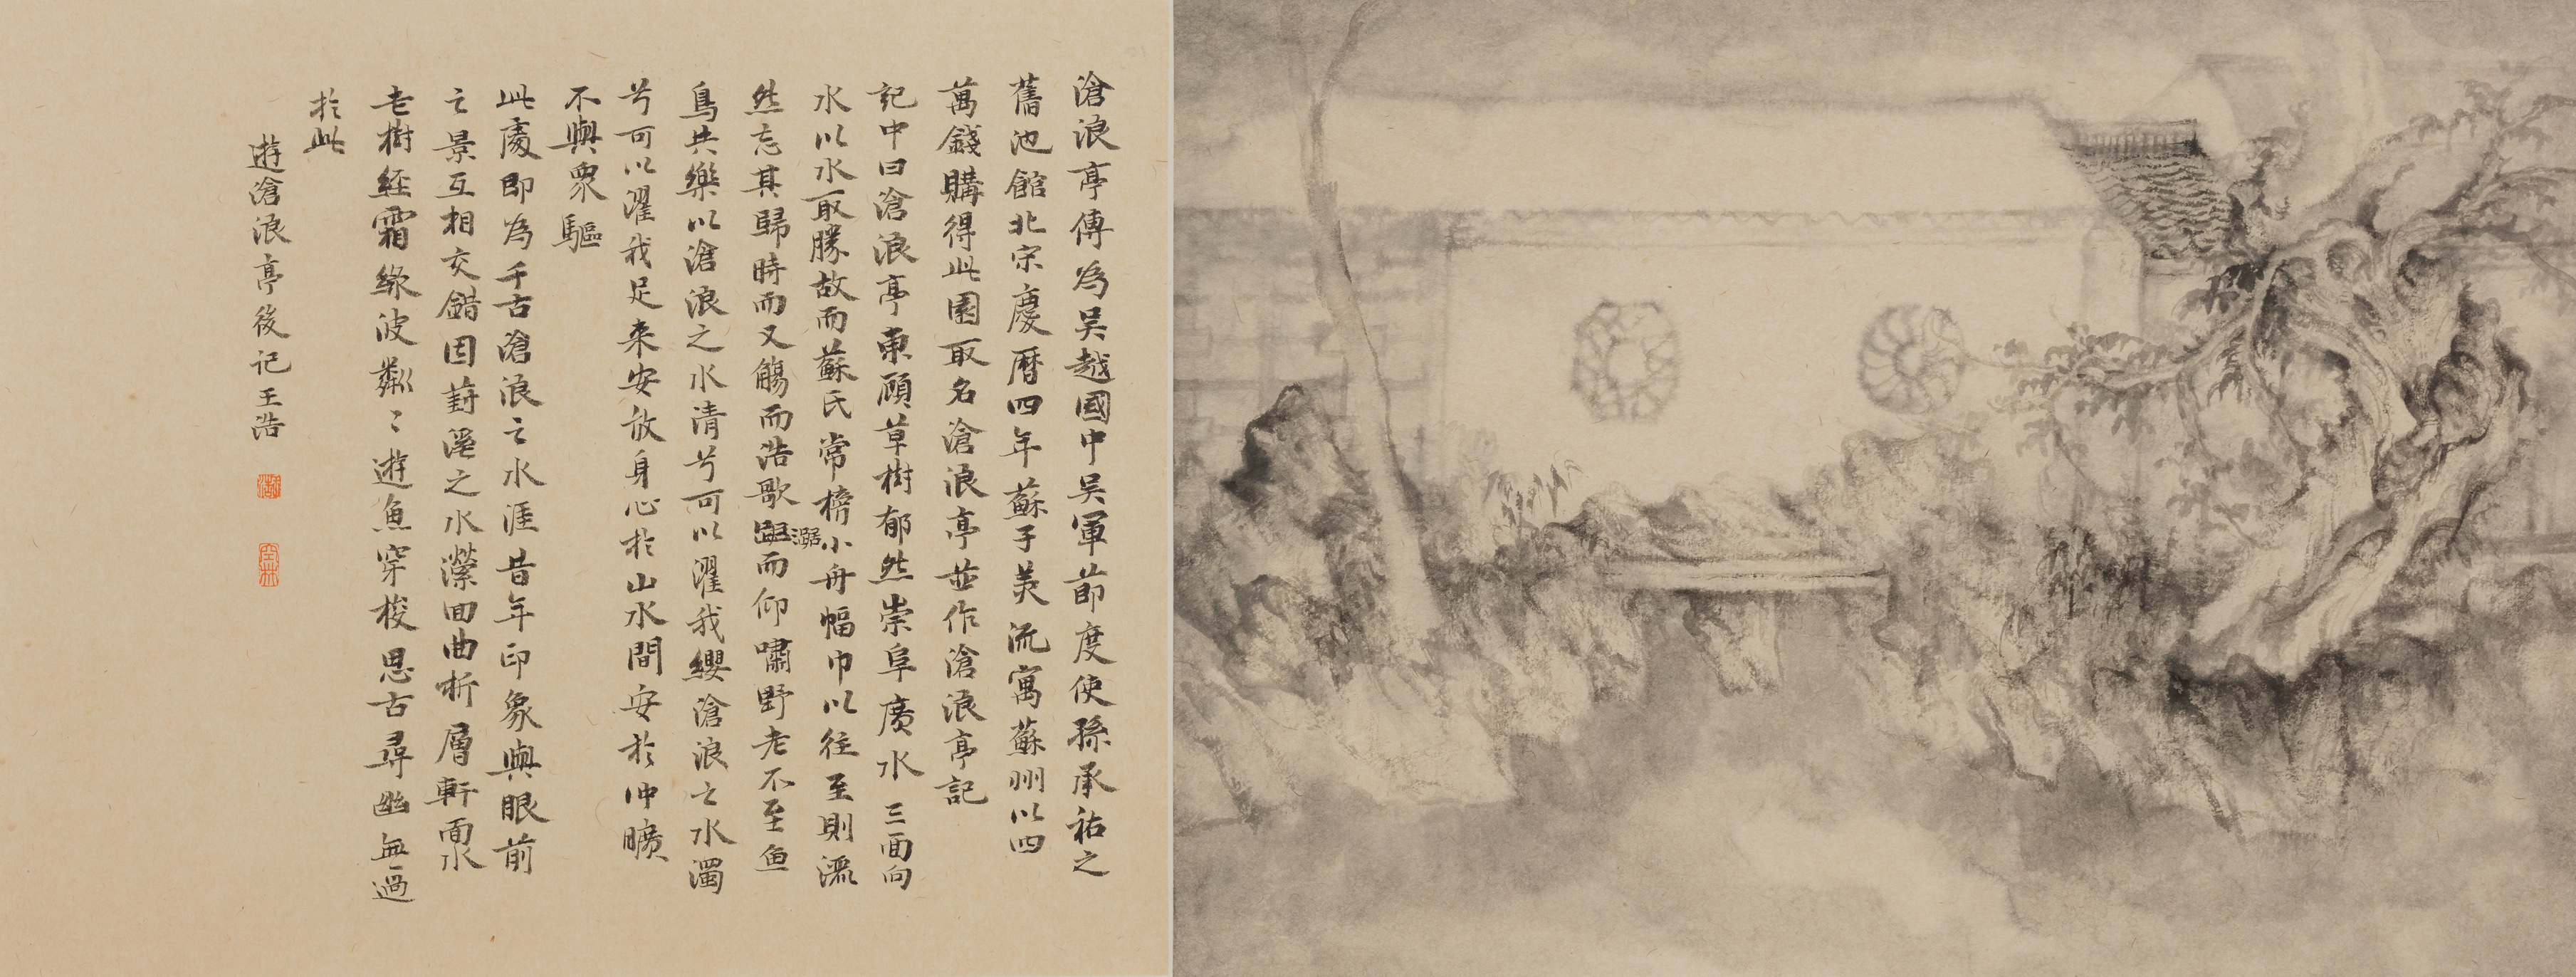 滄浪亭傳為吳越國中吳軍節度使孫承祐之
舊池館北宋慶曆四年蘇子美流寓蘇州以四
萬錢購得此園取名滄浪亭並作滄浪亭記
記中曰滄浪亭東顧草樹郁然崇阜廣水三面向
水以水取勝故而蘇氏常榜小舟幅巾以往至則灑
然忘其歸時而又觴而浩歌踞而仰嘯野老不至鱼
鳥共樂以滄浪之水清兮可以濯我纓滄浪之水濁
兮可以濯我足来安放身心於山水間安於冲曠
不與衆驅
此處即為千古滄浪之水涯昔年印象與眼前
之景互相交錯因葑溪之水瀠回曲折層軒面水
老樹經霜綠波粼〻遊魚穿梭思古尋幽無過
於此
遊滄浪亭後记王浩